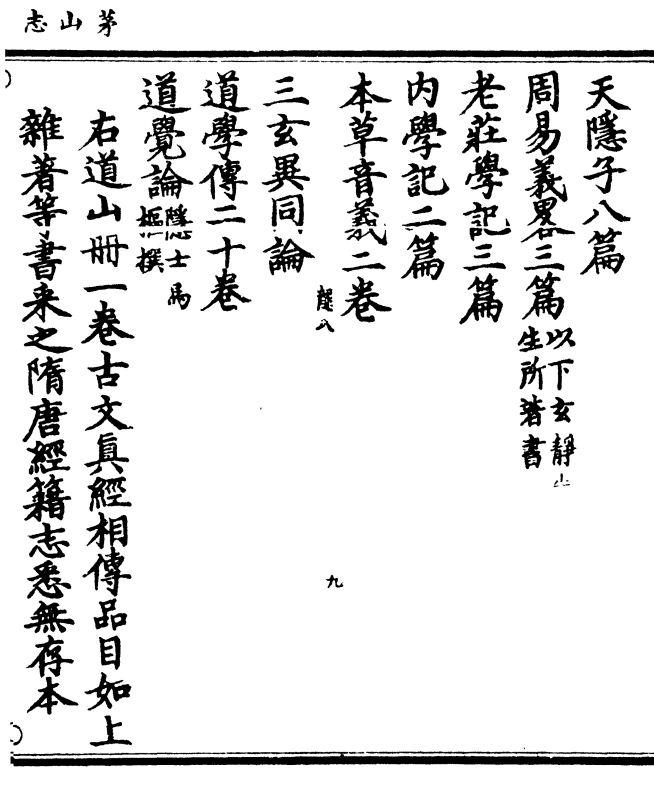 茅山志
天隱子八篇
周易義畧三篇以下玄靜先生所著書
老莊學記三篇
内學記二篇
本草音義二卷
龍八
九
三玄異同論
道學傳二十卷
道覺論隱士馬樞撰
右道山冊一卷古文眞經相傳品目如上
雜著等書來之隋唐經籍志悉無存本